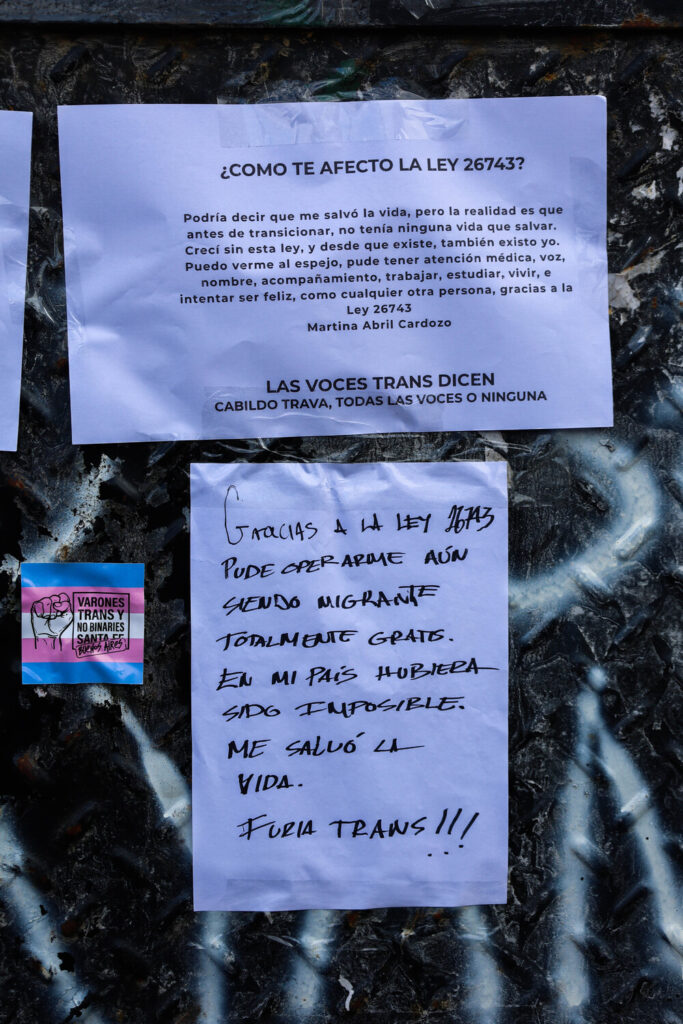 ¿COMO TE AFECTO LA LEY 26743?
Podría decir que me salvó la vida, pero la realidad es que
antes de transicionar, no tenía ninguna vida que salvar.
Crecí sin esta ley, y desde que existe, también existo yo.
Puedo verme al espejo, pude tener atención médica, voz,
nombre, acompañamiento, trabajar, estudiar, vivir, e
intentar ser feliz, como cualquier otra persona, gracias a la
Ley 26743
Martina Abril Cardozo
LAS VOCES TRANS DICEN
CABILDO TRAVA, TODAS LAS VOCES O NINGUNA
GRACIAS A LA LEY 26743
PUDE OPERARME AÚN
SIENDO MIGRANTE
TOTALMENTE GRATIS.
EN MI PAÍS HUBIERA
SIDO IMPOSIBLE.
ME SALVÓ LA
VIDA.
FURIA TRANS!!!
VARONES
TRANS Y
NO BINARIES
SANTA FE
BUENOS AIRES